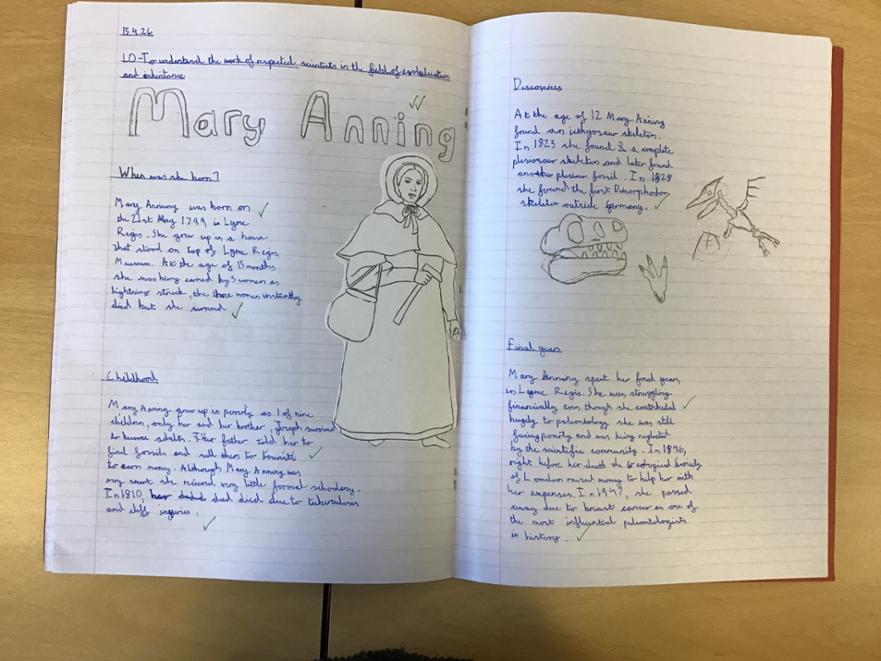 15.4.26
LO-To understand the work of respected scientists in the field of evolution
and inheritance
Mary Anning
When was she born?
Mary Anning was born on
the 21st May 1799 in Lyme
Regis. She grew up in a house
that stood on top of Lyme Regis
Museum. At the age of 15 months
she was being carried by 3 women as
lightning struck, the three women instantly
died but she survived
Childhood
Mary Anning grew up in poverty as 1 of nine
children, only her and her brother, Joseph survived
to become adults. Her father told her to
find fossils and sell them to tourists
to earn money. Although Mary Anning was
very smart she received very little formal schooling.
In 1810, her dad died due to tuberculosis
and cliff injuries.
Discoveries
At the age of 12 Mary Anning
found an icthyosaur skeleton.
In 1823 she found a complete
plesiosaur skeleton and later found
another plesiosaur fossil. In 1828
she found the first Dimorphodon
skeleton outside Germany.
Final years
Mary Anning spent her final years
in Lyme Regis. She was struggling
financially even though she contributed
hugely to paleontology she was still
facing poverty and was being neglected
by the scientific community. In 1846,
right before her death the Geological Society
of London raised money to help her with
her expenses. In 1947, she passed
away due to breast cancer as one of
the most influential paleontologists
in history.